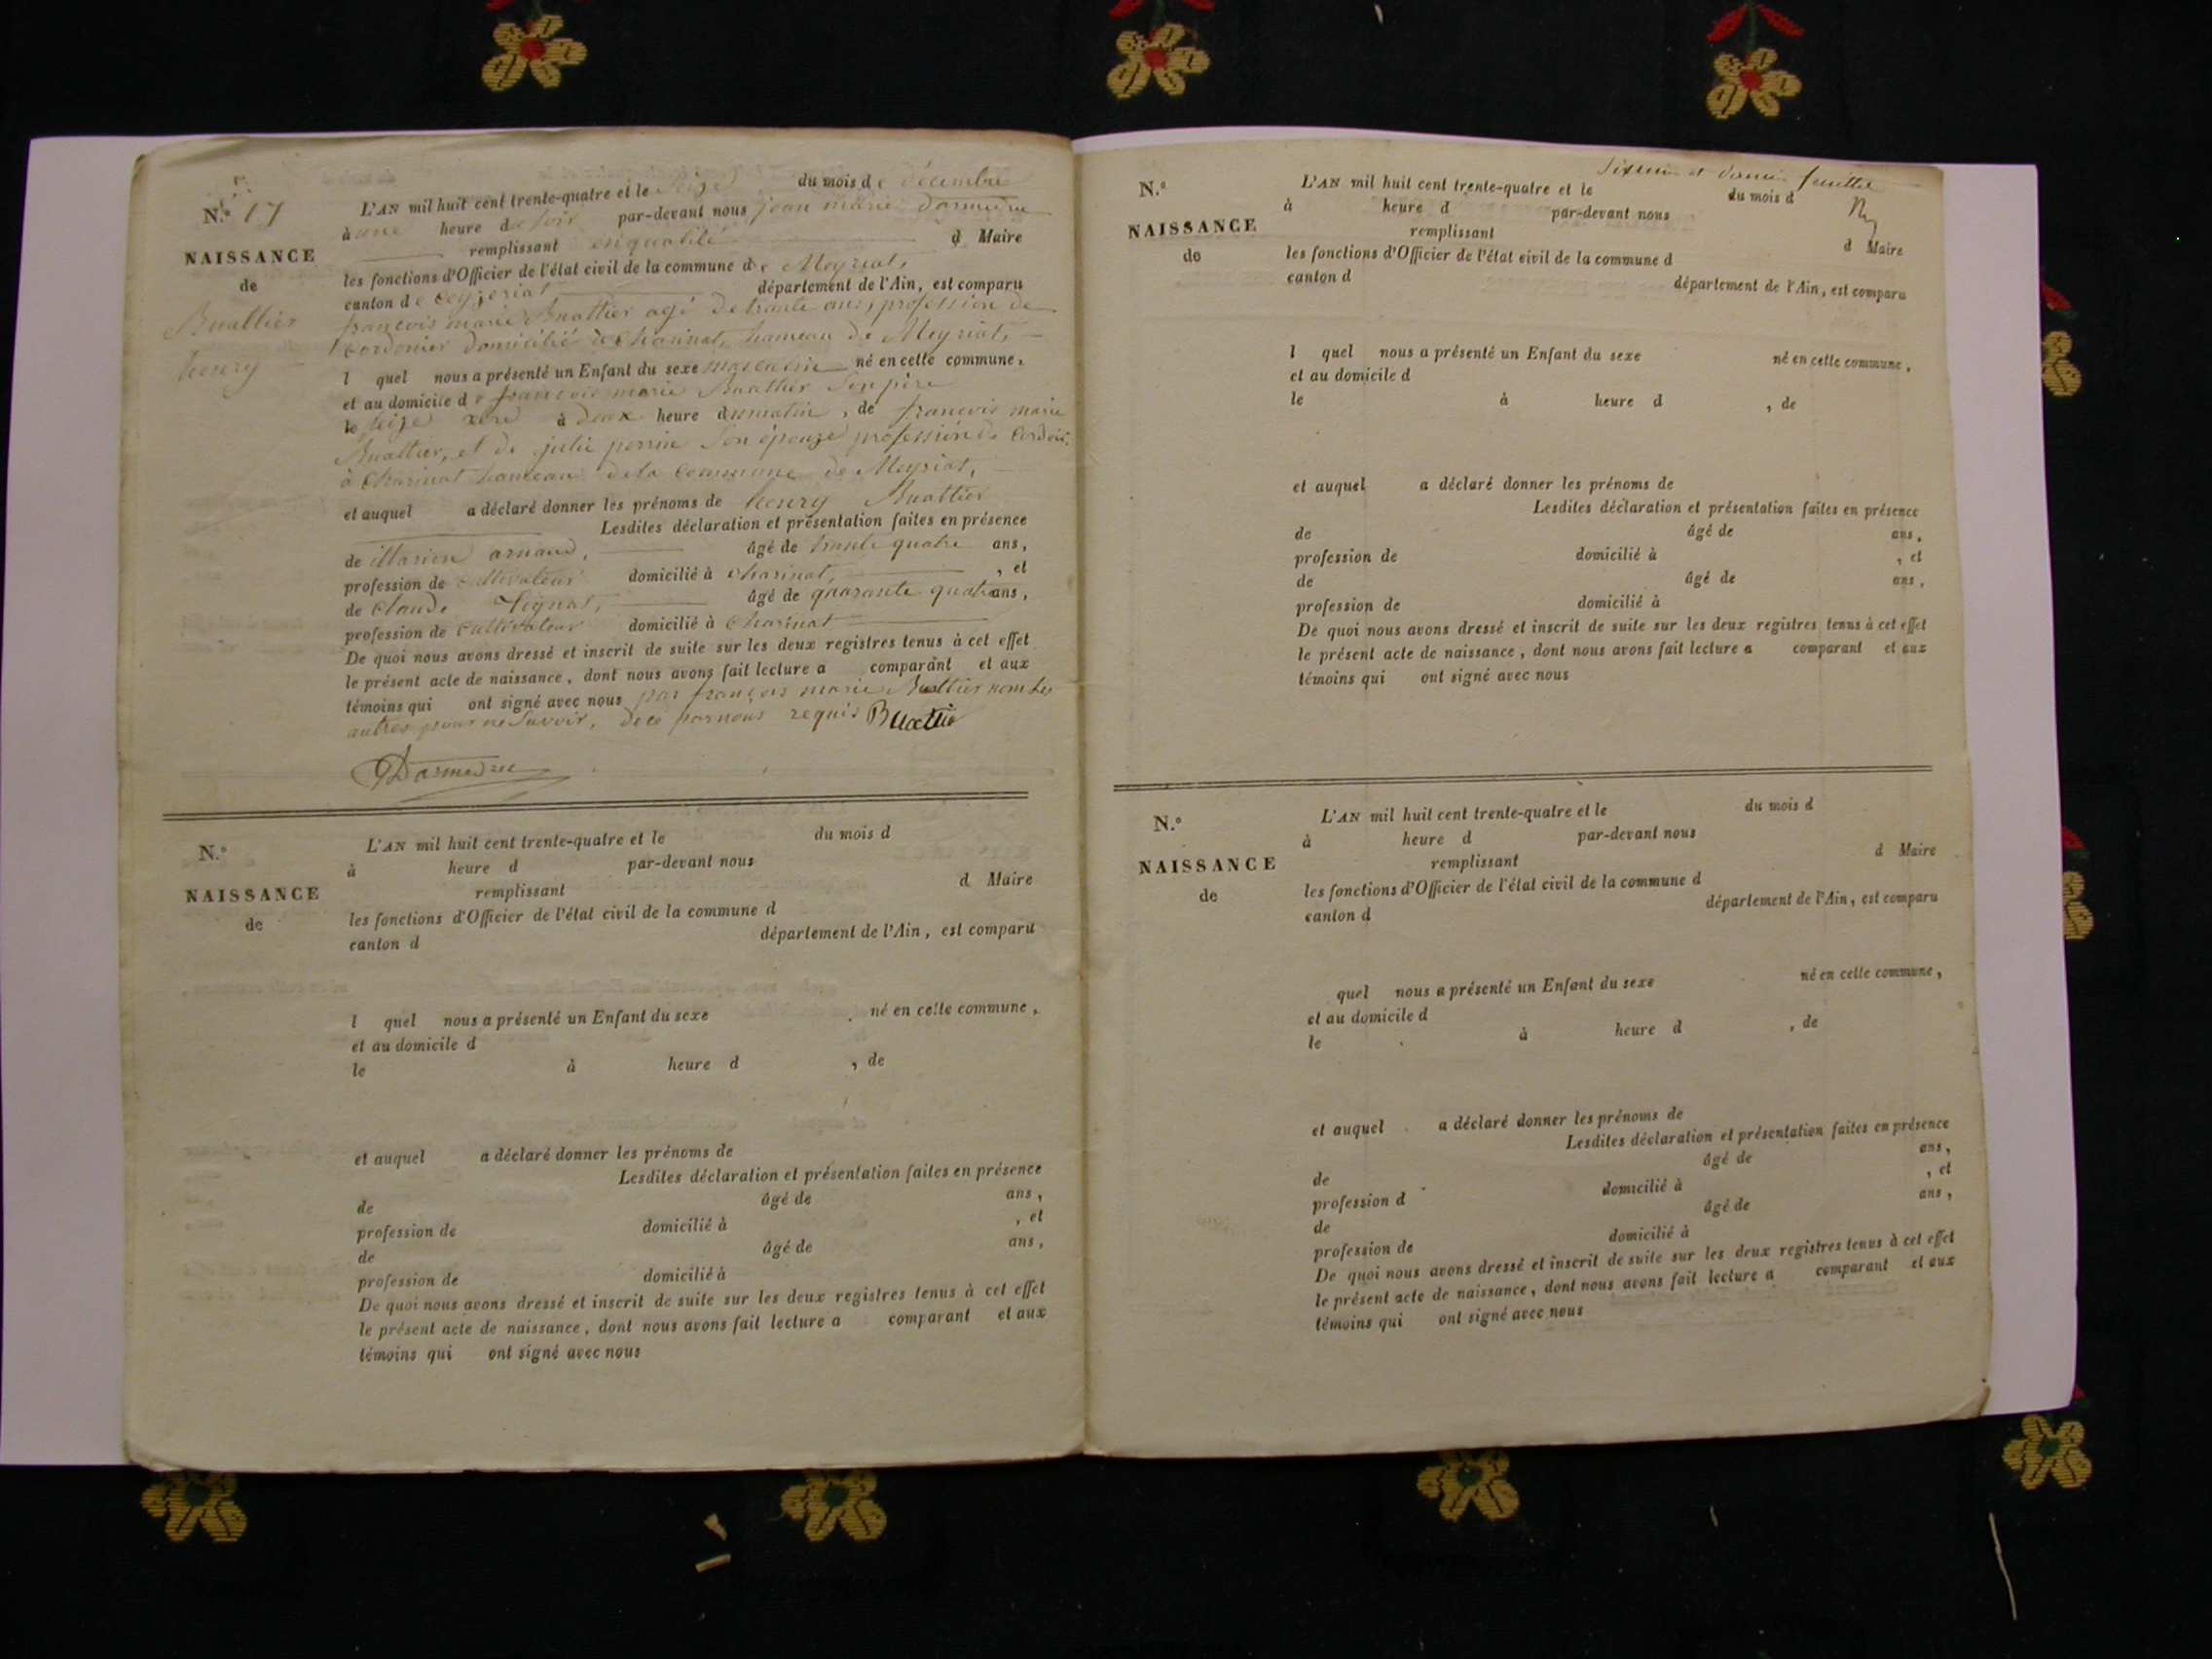 N.o 17
NAISSANCE
de
Buattier
henry
L'AN mil huit cent trente-quatre et le seize du mois de décembre
à une heure de soir par-devant nous jean marie Darmedru
remplissant en qualité d Maire
les fonctions d'Officier de l'état civil de la commune de Meyriat,
canton de Ceyzeriat département de l'Ain, est comparu
francois marie Buattier agé de trante ans, profession de
Cordonier domicilié à Charinat, hameau de Meyriat,
l quel nous a présenté un Enfant du sexe masculin né en cette commune,
et au domicile de francois marie Buattier son père
le seize à deux heure dumatin, de francois marie
Buattier, et de julie perrin son épouze profession de
à Charinat hameau dela Commune de Meyriat,
et auquel a déclaré donner les prénoms de henry Buattier
Lesdites déclaration et présentation faites en présence
de Marien arnaud, âgé de trante quatre ans,
profession de cultivateur domicilié à Charinat, , et
de Claude âgé de quarante quatre ans,
profession de Cultivateur domicilié à Charinat
De quoi nous avons dressé et inscrit de suite sur les deux registres tenus à cet effet
le présent acte de naissance, dont nous avons fait lecture a comparant et aux
témoins qui ont signé avec nous par françois marie Buattier non les
autres pour ne savoir, dece parnous requis Buattie
Darmedru
N.o
NAISSANCE
de
L'AN mil huit cent trente-quatre et le du mois d
à heure d par-devant nous
remplissant d Maire
les fonctions d'Officier de l'état civil de la commune d
canton d département de l'Ain, est comparu
l quel nous a présenté un Enfant du sexe né en cette commune,
et au domicile d
le à heure d , de
et auquel a déclaré donner les prénoms de
Lesdites déclaration et présentation faites en présence
de âgé de ans,
profession de domicilié à , et
de âgé de ans,
profession de domicilié à
De quoi nous avons dressé et inscrit de suite sur les deux registres tenus à cet effet
le présent acte de naissance, dont nous avons fait lecture a comparant et aux
témoins qui ont signé avec nous
feuillet
N.o
NAISSANCE
de
L'AN mil huit cent trente-quatre et le du mois d
à heure d par-devant nous
remplissant d Maire
les fonctions d'Officier de l'état civil de la commune d
canton d département de l'Ain, est comparu
l quel nous a présenté un Enfant du sexe né en cette commune,
et au domicile d
le à heure d , de
et auquel a déclaré donner les prénoms de
Lesdites déclaration et présentation faites en présence
de âgé de ans,
profession de domicilié à , et
de âgé de ans,
profession de domicilié à
De quoi nous avons dressé et inscrit de suite sur les deux registres tenus à cet effet
le présent acte de naissance, dont nous avons fait lecture a comparant et aux
témoins qui ont signé avec nous
N.o
NAISSANCE
de
L'AN mil huit cent trente-quatre et le du mois d
à heure d par-devant nous
remplissant d Maire
les fonctions d'Officier de l'état civil de la commune d
canton d département de l'Ain, est comparu
quel nous a présenté un Enfant du sexe né en cette commune,
et au domicile d
le à heure d , de
et auquel a déclaré donner les prénoms de
Lesdites déclaration et présentation faites en présence
de âgé de ans,
profession d domicilié à , et
de âgé de ans,
profession de domicilié à
De quoi nous avons dressé et inscrit de suite sur les deux registres tenus à cet effet
le présent acte de naissance, dont nous avons fait lecture a comparant et aux
témoins qui ont signé avec nous